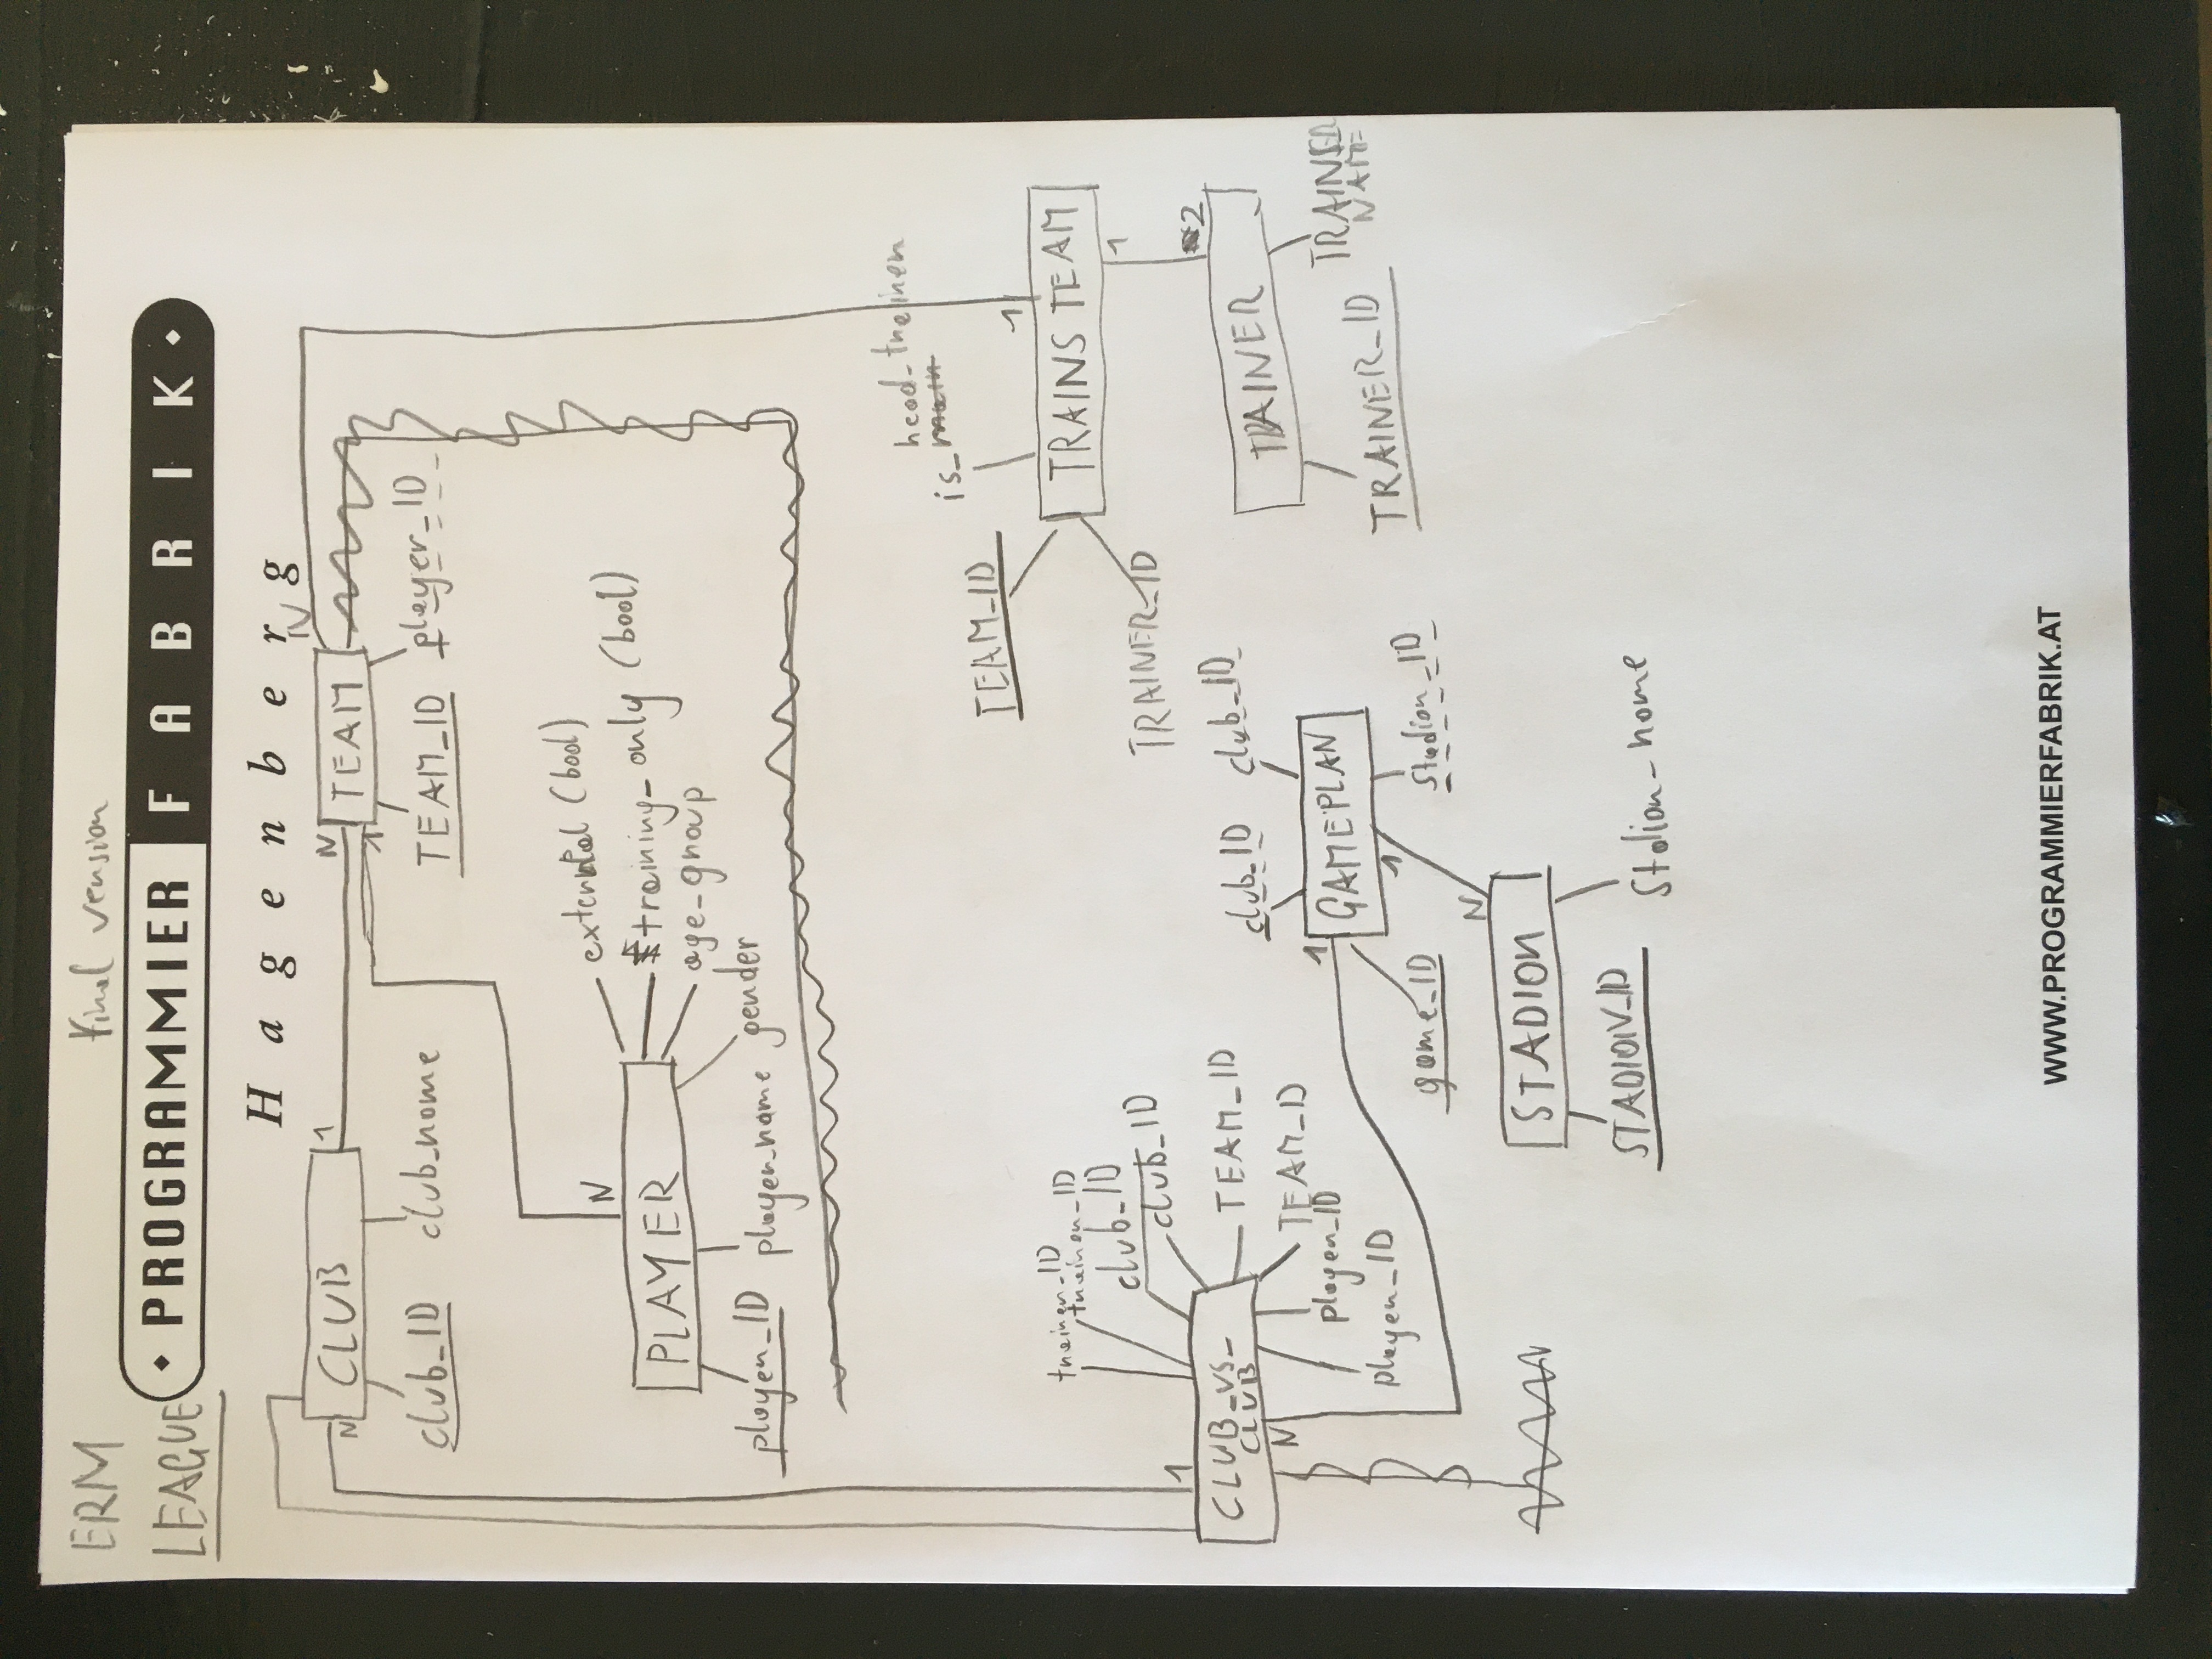 ERM
Final version
LEAGUE
PROGRAMMIER FABRIK
Hagenberg
N
CLUB
1
N
TEAM
N
1
club_ID
club_name
TEAM_ID
player_ID
N
external (bool)
training_only (bool)
age_group
PLAYER
player_ID
player_name
gender
head_trainer
is_main
TEAM_ID
1
TRAINS TEAM
TRAINER_ID
1
2
TRAINER
TRAINER_ID
TRAINER
NAME
trainer_ID
trainer_ID
club_ID
club_ID
1
CLUB_VS_
CLUB
TEAM_ID
N
TEAM_ID
player_ID
player_ID
club_ID
club_ID
1
GAMEPLAN
1
game_ID
stadion_ID
N
STADION
STADION_ID
Stdion_name
WWW.PROGRAMMIERFABRIK.AT